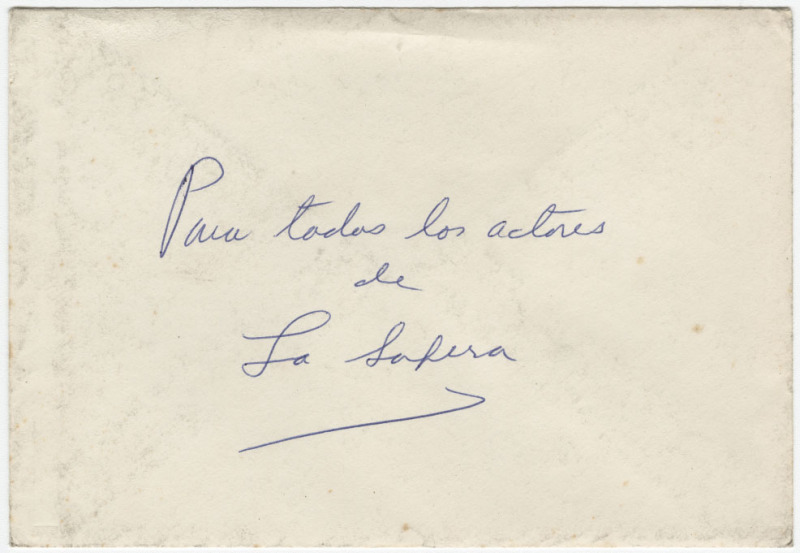 Para todos los actores
de
La Sopera